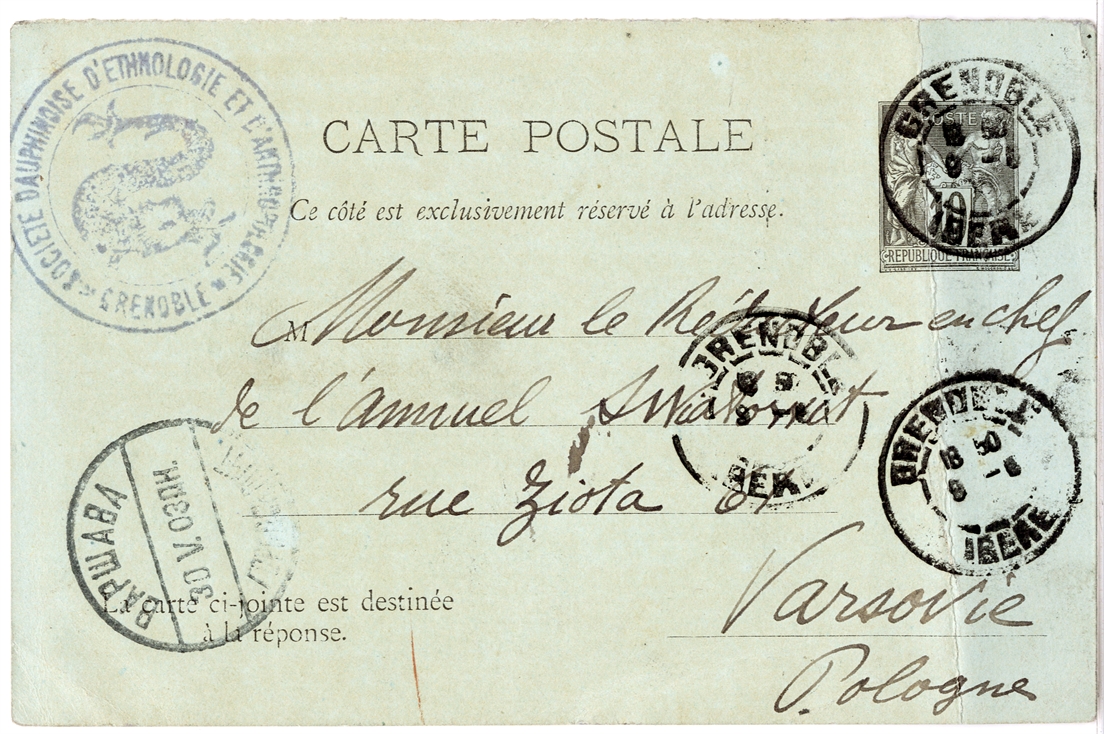 SOCIETE DAUPHINOISE D'ETHNOLOGIE ET D'ANTHROPOLOGIE
* GRENOBLE *
CARTE POSTALE
Ce côté est exclusivement réservé à l'adresse.
GRENOBLE
POSTE
10
REPUBLIQUE FRANÇAISE
ISERE
M Monsieur le Rédacteur en chef
de l'annuel Swiatowit
rue Ziota 61
GRENOBLE
ISERE
GRENOBLE
ISERE
Varsovie
Pologne
ВАРШАВА
30 V.03
La carte ci-jointe est destinée
à la réponse.